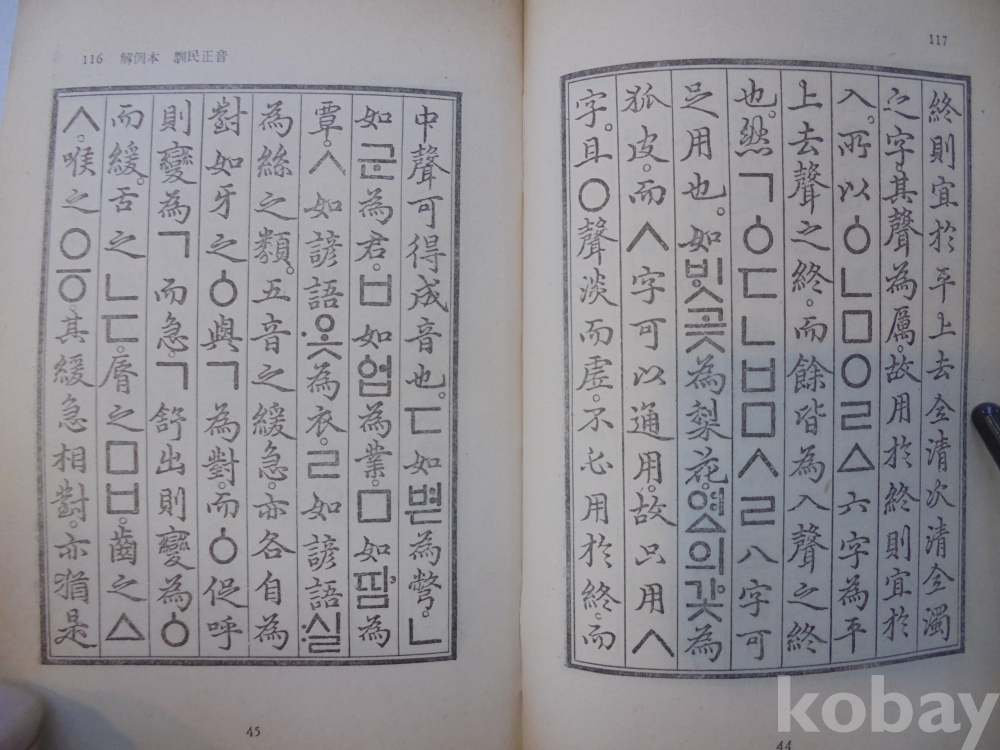 117
終則宜於平上去全清次清全濁
之字。其聲為厲。故用於終則宜於
入。所以ㆁㄴㅁㅇㄹㅿ六字為平
上去聲之終。而餘皆為入聲之終
也。然ㄱㆁㄷㄴㅂㅁㅅㄹ八字可
足用也。如빗곶為梨花。여ᇫ의갗為
狐皮。而ㅅ字可以通用。故只用ㅅ
字。且ㅇ聲淡而虛。不必用於終。而
44
116 解例本 訓民正音
中聲可得成音也。ㄷ如볃為彆。ㄴ
如군為君。ㅂ如ᅌᅥᆸ為業。ㅁ如땀為
覃。ㅅ如諺語·옷為衣。ㄹ如諺語:실
為絲之類。五音之緩急。亦各自為
對如牙之ㆁ與ㄱ為對。而ㆁ促呼
則變為ㄱ而急。ㄱ舒出則變為ㆁ
而緩。舌之ㄴㄷ。脣之ㅁㅂ。齒之ㅿ
ㅅ。喉之ㅇㆆ。其緩急相對。亦猶是
45
kobay